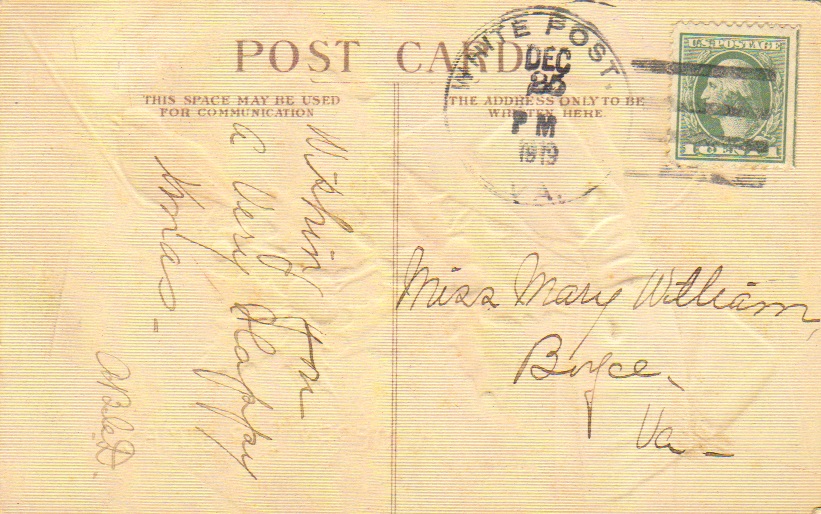 POST CARD
THIS SPACE MAY BE USED
FOR COMMUNICATION
THE ADDRESS ONLY TO BE
WRITTEN HERE.
WHITE POST.
DEC
25
PM
1919
VA.
U.S. POSTAGE
1 CENT 1
Wishin
a Very Happy
Xmas -
Miss Mary William
Boyce -
Va -